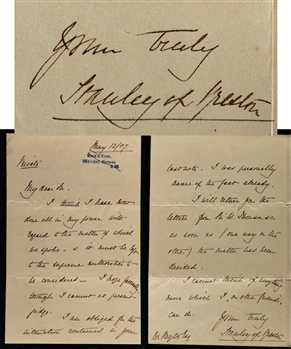 Yours Truly
Stanley of Preston
May 12/87
Private
My dear Sir
I think I have now
done all in my power with
regard to the matter of which
we spoke - & it must be left
to the supreme authorities to
be considered - I hope
though I cannot at present
judge.
I am obliged for the
information contained in your
last note. I was personally
aware of the fact already.
I will return you the
letters from Sir W.
as soon as (one way or the
other) the matter has been
decided.
I cannot think of anything
more which I, or other friends,
can do.
Yours truly
Stanley of Preston
Esq